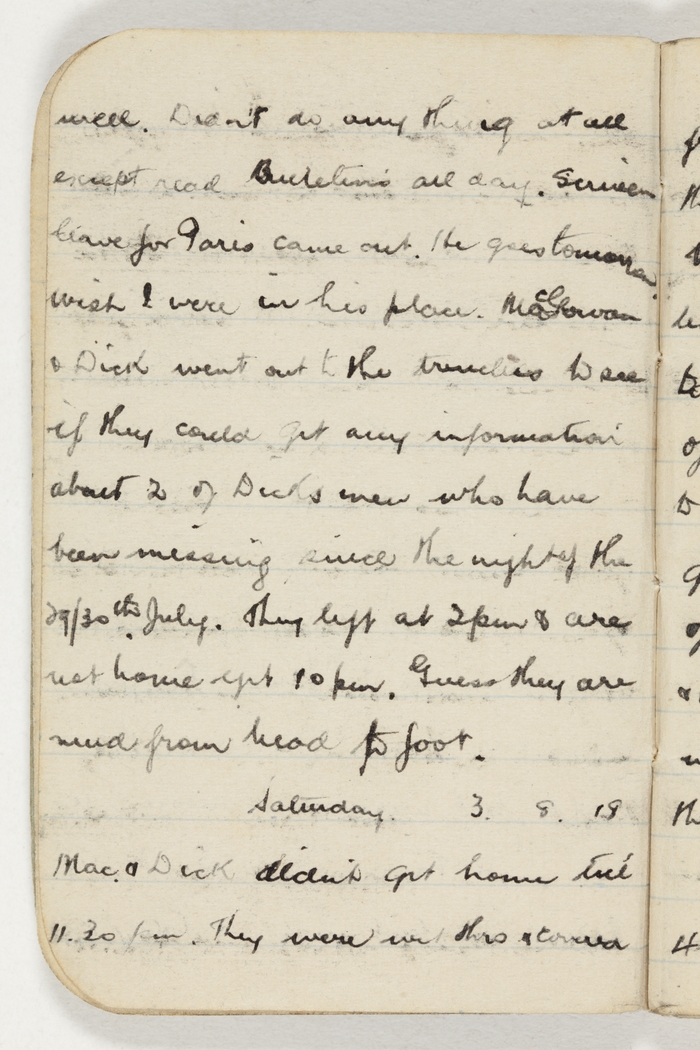 well. Didn't do any thing at all
except read Bulletins all day. Scriven
leave for Paris came out. He goes tomorrow
wish I were in his place. McGowan
& Dick went out to the trenches to see
if they could get any information
about 2 of Dicks men who have
been missing since the night of the
29/30th July. They left at 2pm & are
not home yet 10 pm. Guess they are
mud from head to foot.
Saturday. 3. 8. 18
Mac. & Dick didnt get home till
11.30 pm. They were wet thro & covered
f
th
t
le
to
of
D
g
of
a
th
4